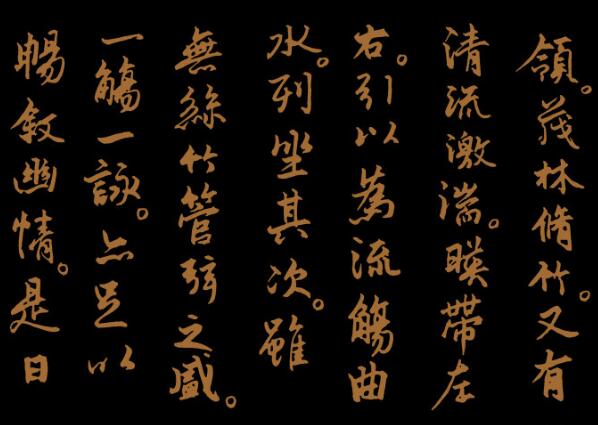 領。茂林脩竹。又有
清流激湍。暎帶左
右。引以為流觴曲
水。列坐其次。雖
無絲竹管弦之盛。
一觴一詠。亦足以
暢敘幽情。是日